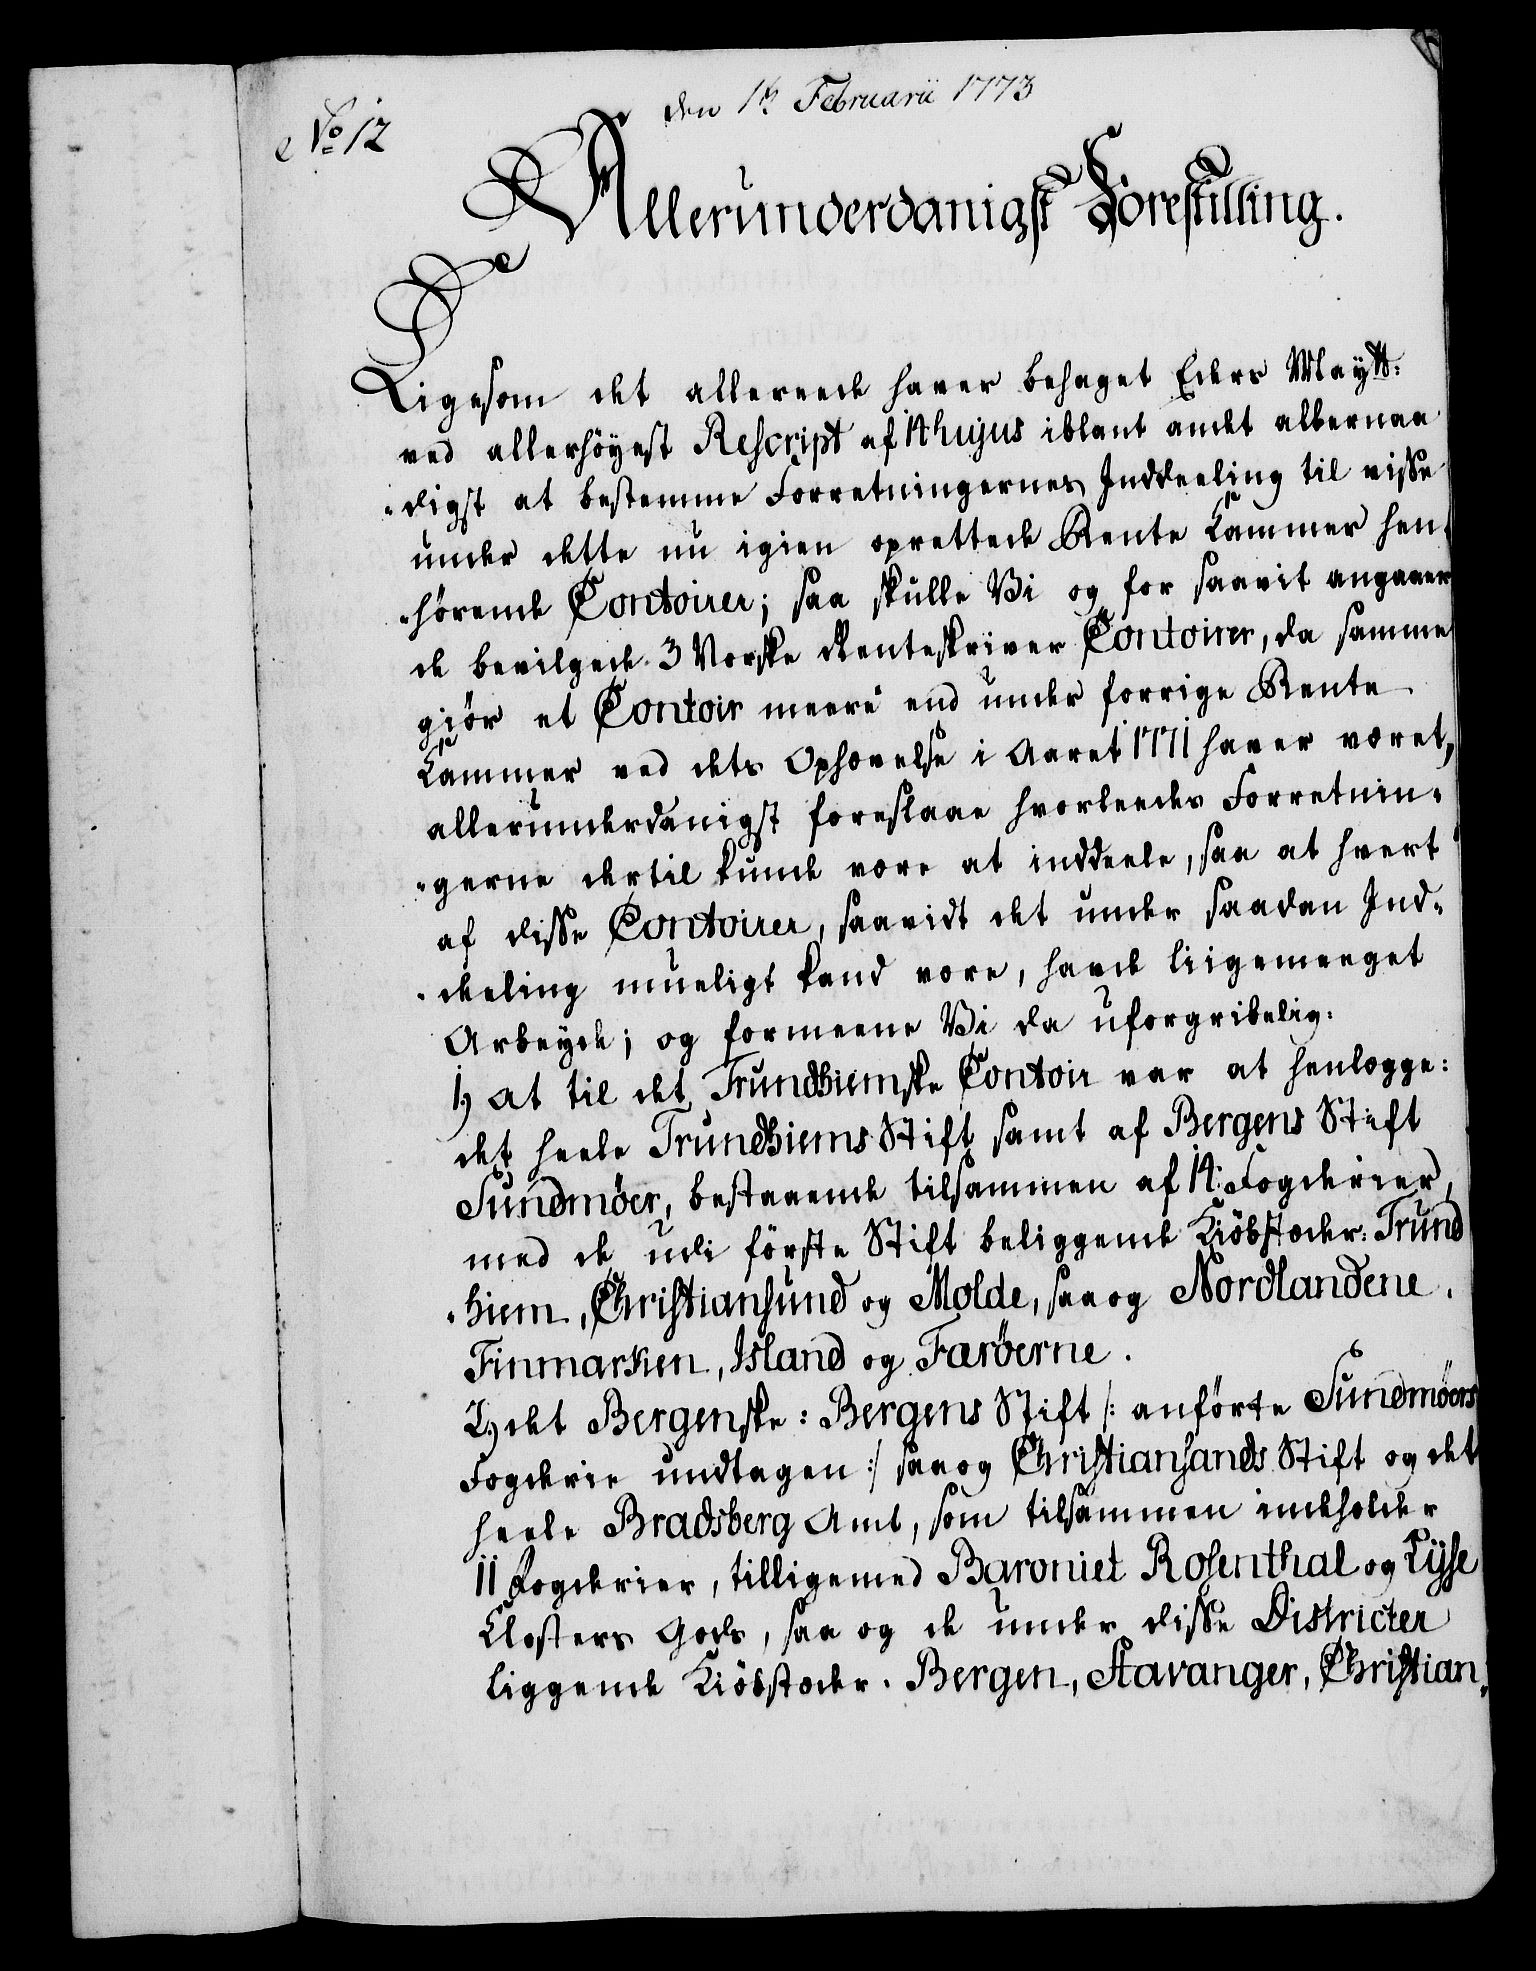 No 12
den Februarii 1773
Allerunderdanigst Forestilling.
Ligesom det allereede haver behaget Eders Maytt:
ved allerhöyest Rescript af 14 hujus iblant andet allernaa
-digst at bestemme Forretningernes Inddeeling til visse
under dette nu igien oprettede Rente Kammer hen-
-hörende Contoirer; saa skulle Vi og for saavit angaaer
de bevilgede 3 Norske Renteskriver Contoirer, da samme
giör et Contoir meere end under forrige Rente
Kammer ved dets Ophævelse i Aaret 1771 haver været,
allerunderdanigst foreslaae hvorleedes Forretnin-
-gerne dertil kunde være at inddeele, saa at hvert
af disse Contoirer, saavidt det under saadan Ind-
-deeling mueligt kand være, havde liigemeeget
Arbeyde; og formeene Vi da uforgribelig:
1) at til det Trundhiemske Contoir var at henlægge:
det heele Trundhiems Stift samt af Bergens Stift
Sundmöer, bestaaende tilsammen af 14 Fogderier,
med de udi förste Stift beliggende Kiöbstæder: Trund
-hiem, Christiansund og Molde, saa og Nordlandene.
Finmarken, Island og Færöerne.
2) det Bergenske: Bergens Stift /: anförte Sundmöers
Fogderie undtagen :/ saa og Christiansands Stift og det
heele Bradsberg Amt, som tilsammen indeholder
11 Fogderier, tilligemed Baroniet Rosenthal og Lyse
Closters Gods, saa og de under disse Districter
liggende Kiöbstæder. Bergen, Stavanger, Christian-